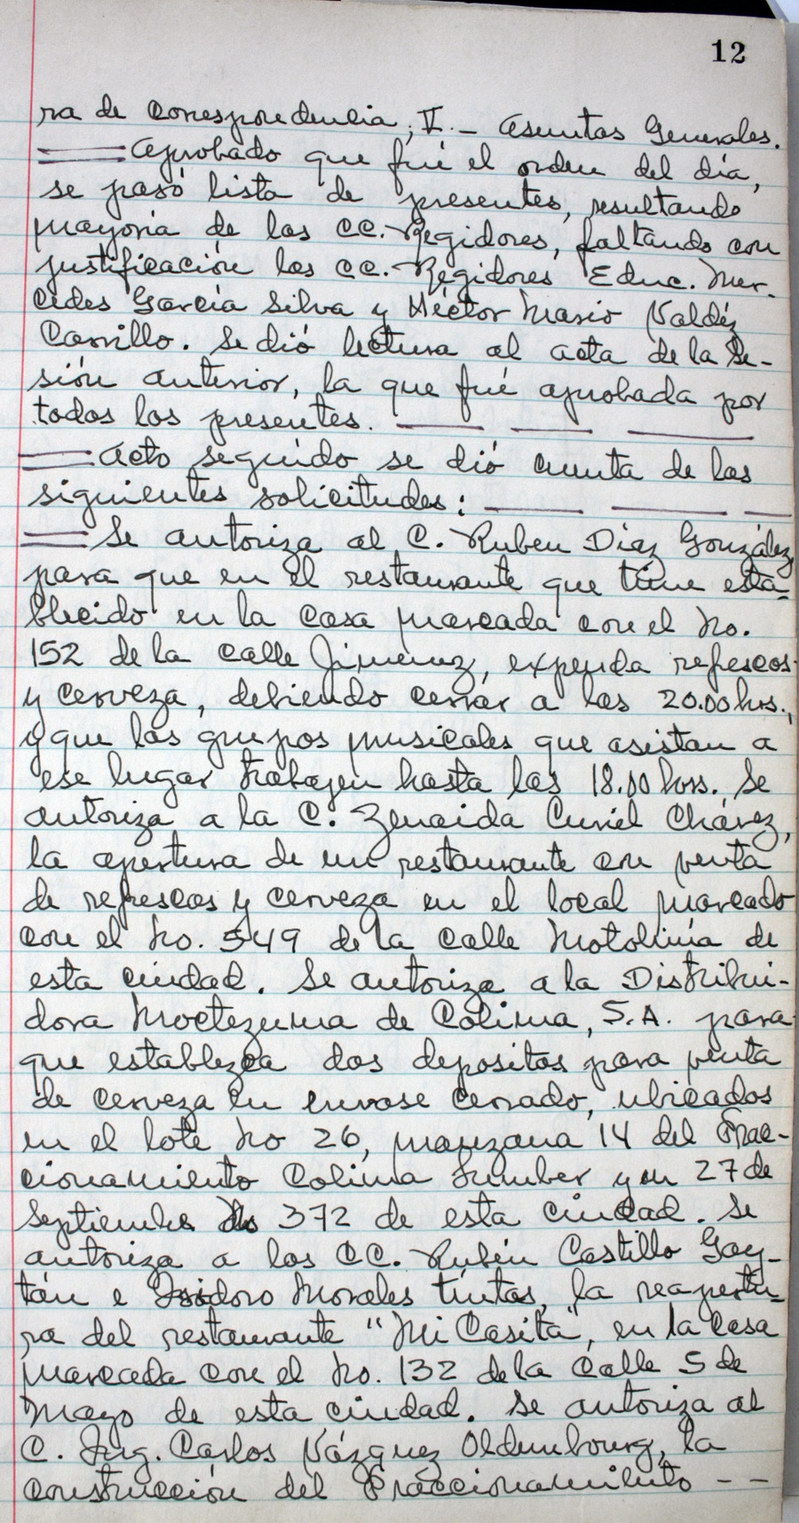 12
ra de correspondencia; V.- Asuntos Generales.
Aprobado que fué el orden del día,
se pasó lista de presentes, resultando
mayoría de los CC. Regidores, faltando con
justificación los CC. Regidores Educ. Mer-
cedes García Silva y Héctor Mario Valdéz
Carrillo. Se dió lectura al acta de la Se-
sión anterior, la que fué aprobada por
todos los presentes. — — —
Acto seguido se dió cuenta de las
siguientes solicitudes: — — —
Se autoriza al C. Ruben Díaz González
para que en el restaurante que tiene esta-
blecido en la casa marcada con el No.
152 de la calle Jiménez, expenda refrescos
y cerveza, debiendo cerrar a las 20.00 hrs.,
y que los grupos musicales que asistan a
ese lugar trabajen hasta las 18.00 hrs. Se
autoriza a la C. Zenaida Curiel Chávez,
la apertura de un restaurante con venta
de refrescos y cerveza en el local marcado
con el No. 549 de la calle Motolinía de
esta ciudad. Se autoriza a la Distribui-
dora Moctezuma de Colima, S.A. para
que establezca dos depositos para venta
de cerveza en envase cerrado, ubicados
en el lote No 26, manzana 14 del Frac-
cionamiento Colima Lumber y en 27 de
Septiembre No 372 de esta ciudad. Se
autoriza a los CC. Rubén Castillo Gay-
tán e Isidoro Morales tintas, la reapertu-
ra del restaurante "Mi Casita", en la casa
marcada con el No. 132 de la Calle 5 de
Mayo de esta ciudad. Se autoriza al
C. Ing. Carlos Vázquez Oldenbourg, la
construcción del Fraccionamiento - -